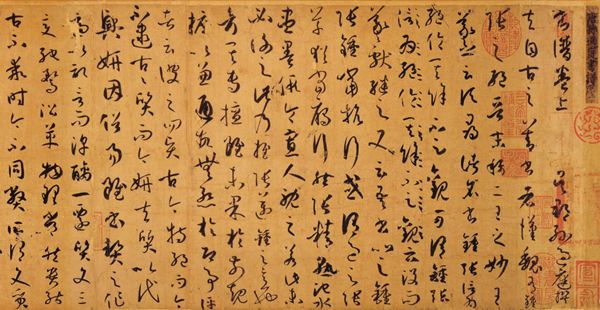 書譜卷上 吳郡孫過庭撰
夫自古之善書者漢魏有鍾
張之絕晉末稱二王之妙王
羲之云頃尋諸名書鍾張信
為絕倫其餘不足觀可謂鍾張
信為絕倫其餘不足觀云沒而
羲獻繼之又云吾書比之鍾
張鍾當抗行或謂過之張
草猶當雁行然張精熟池水
盡墨假令寡人耽之若此未
必謝之此乃推張邁鍾之意也
考其專擅雖未果於前規
摭以兼通故無慚於即事評
者云彼之四賢古今特絕而今
不逮古古質而今妍夫質以代
興妍因俗易雖書契之作
適以記言而淳醨一遷質文三
變馳騖沿革物理常然貴能
古不乖時今不同弊所謂文質